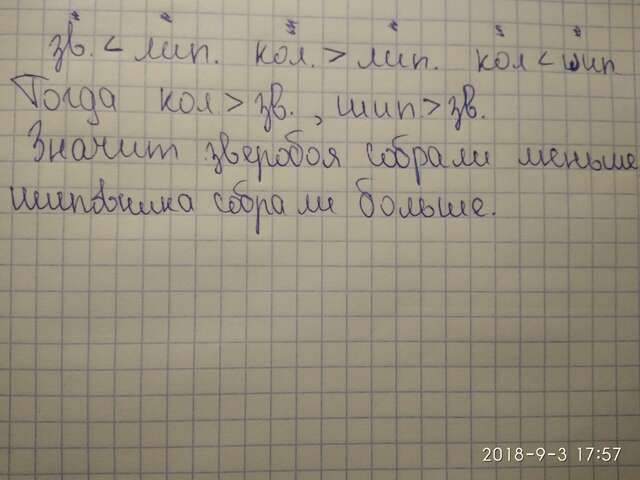 зв. < лип. кол. > лип. кол < шип
Тогда кол > зв. , шип > зв.
Значит зверобоя собрали меньше
шиповника собрали больше.
2018-9-3 17:57